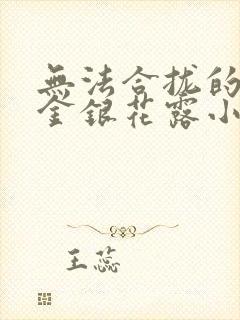 無法合拢的
金銀花露小
王蕊